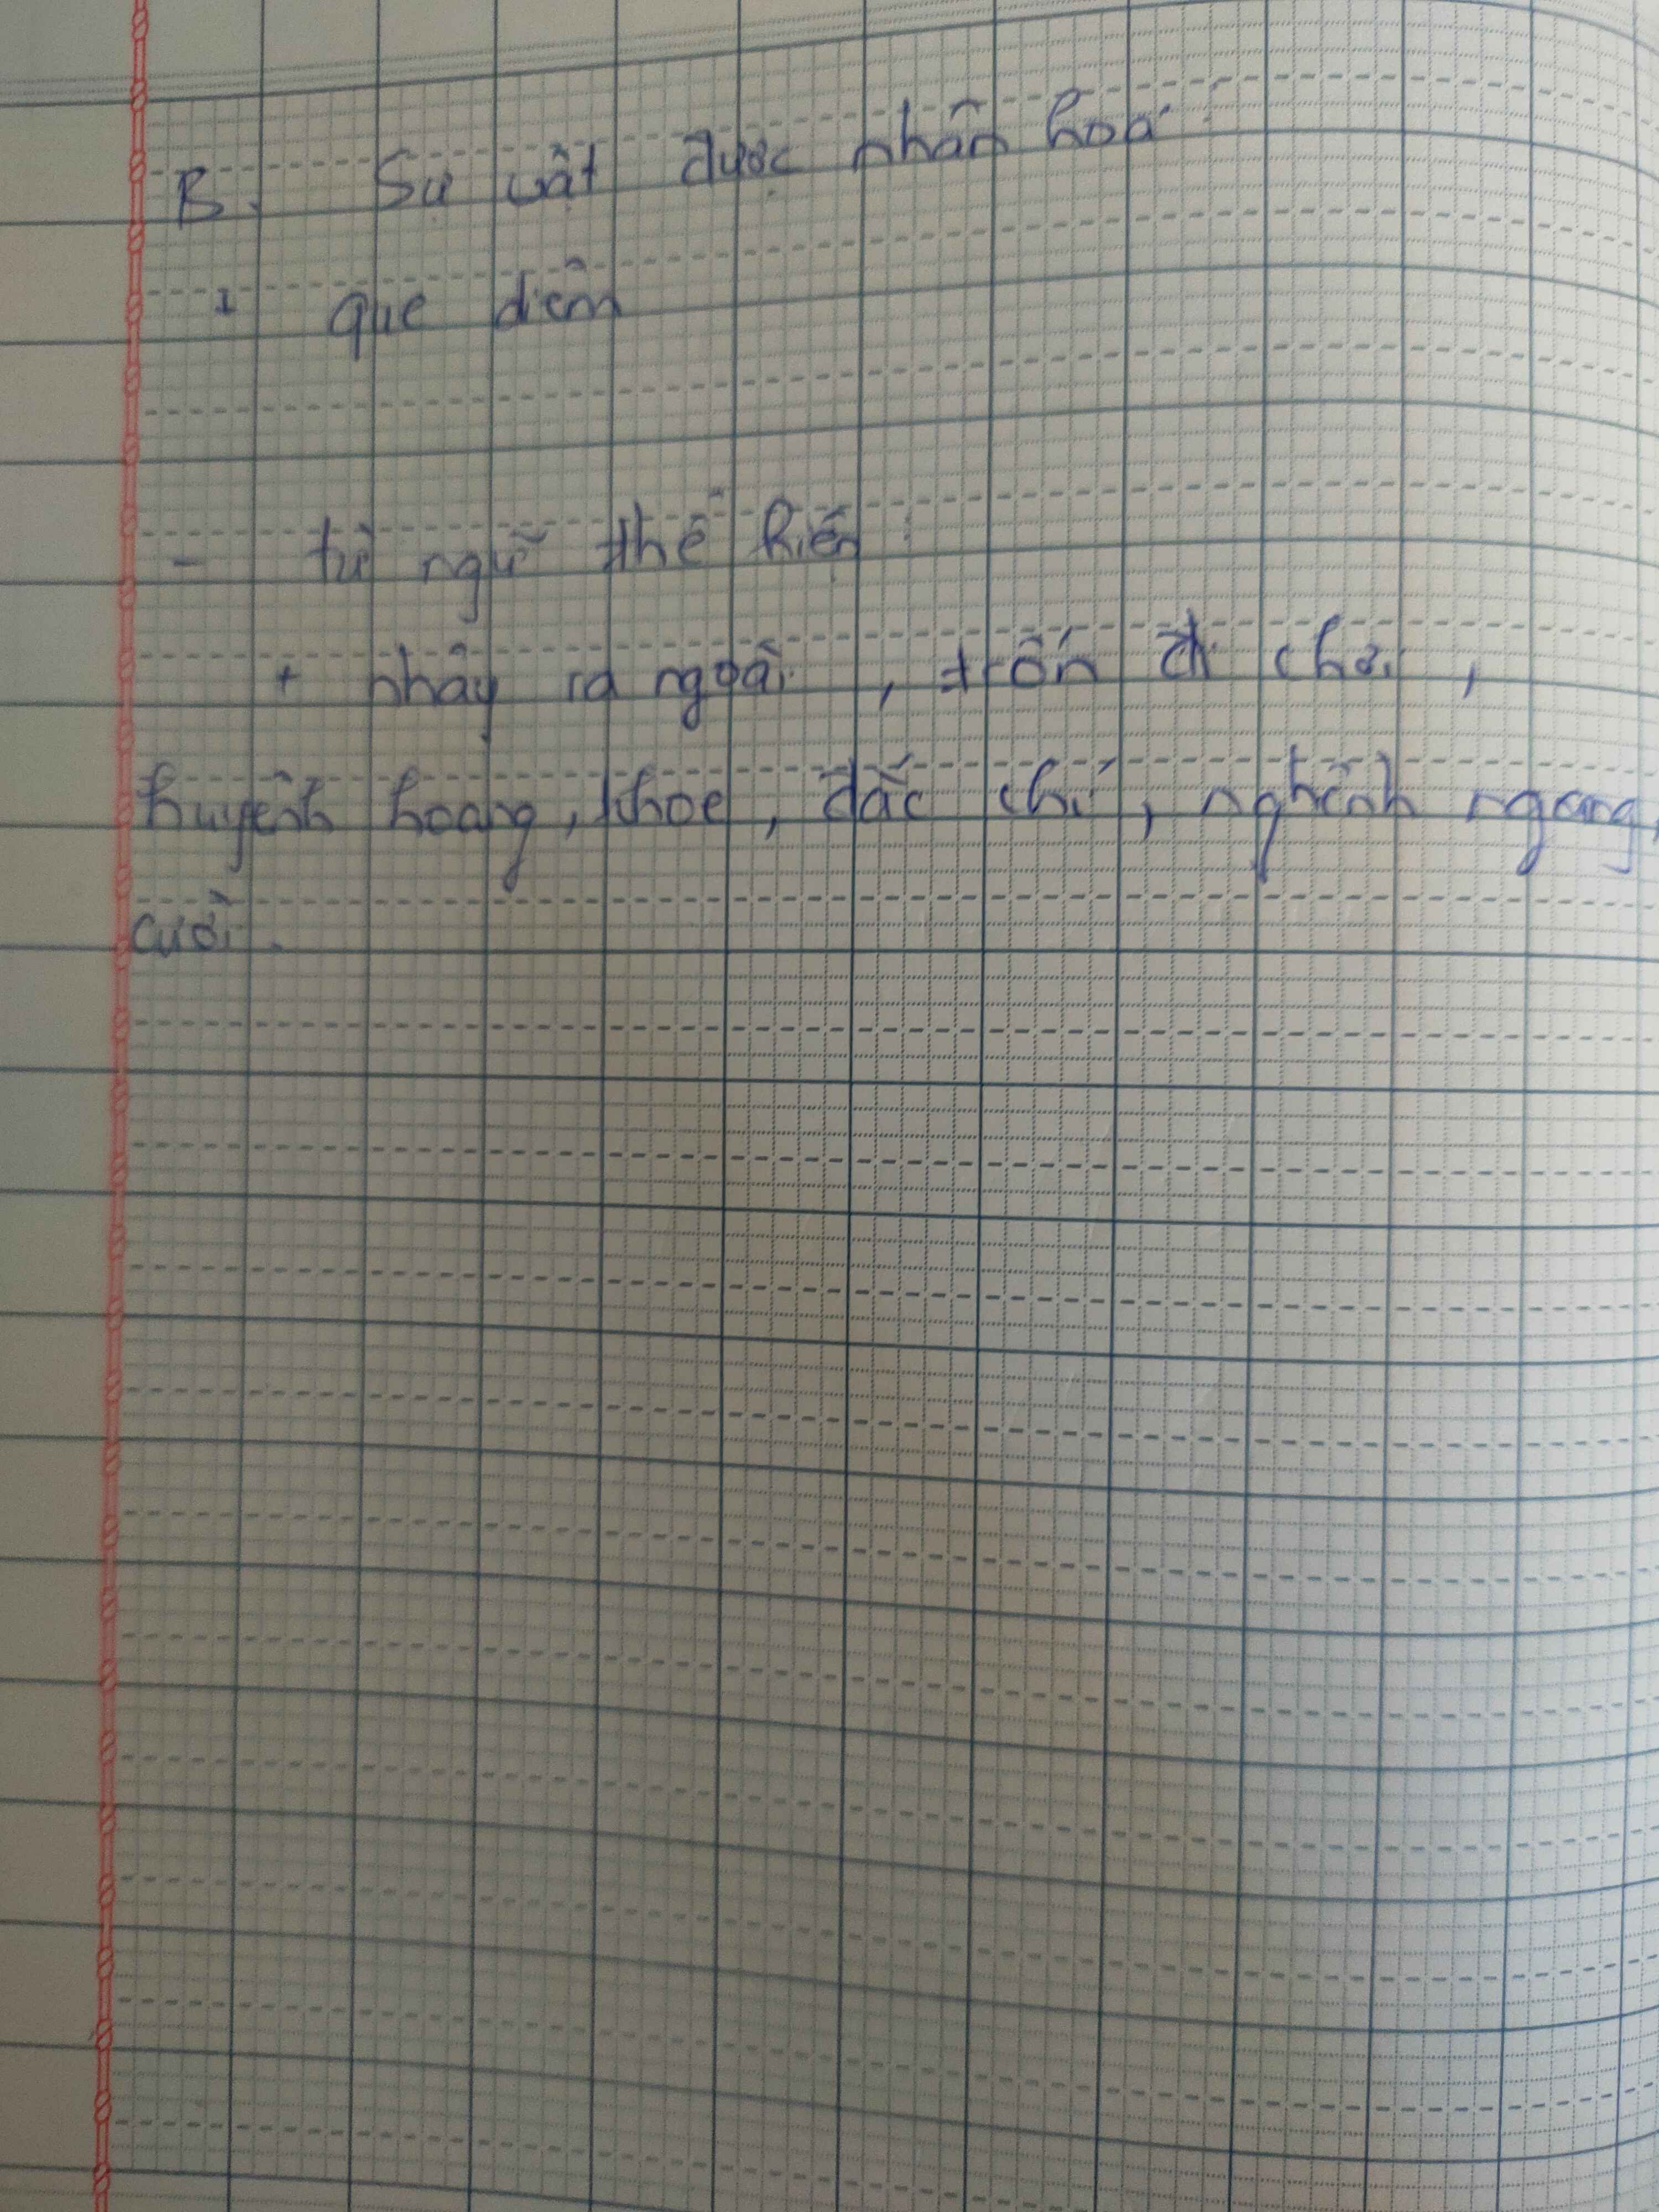 B. Sự vật được nhân hoá :
+ que diêm
- từ ngữ thể hiện :
+ nhảy ra ngoài , trốn đi chơi ,
huyênh hoang, khoe , đắc chí , nghênh ngang,
cười .